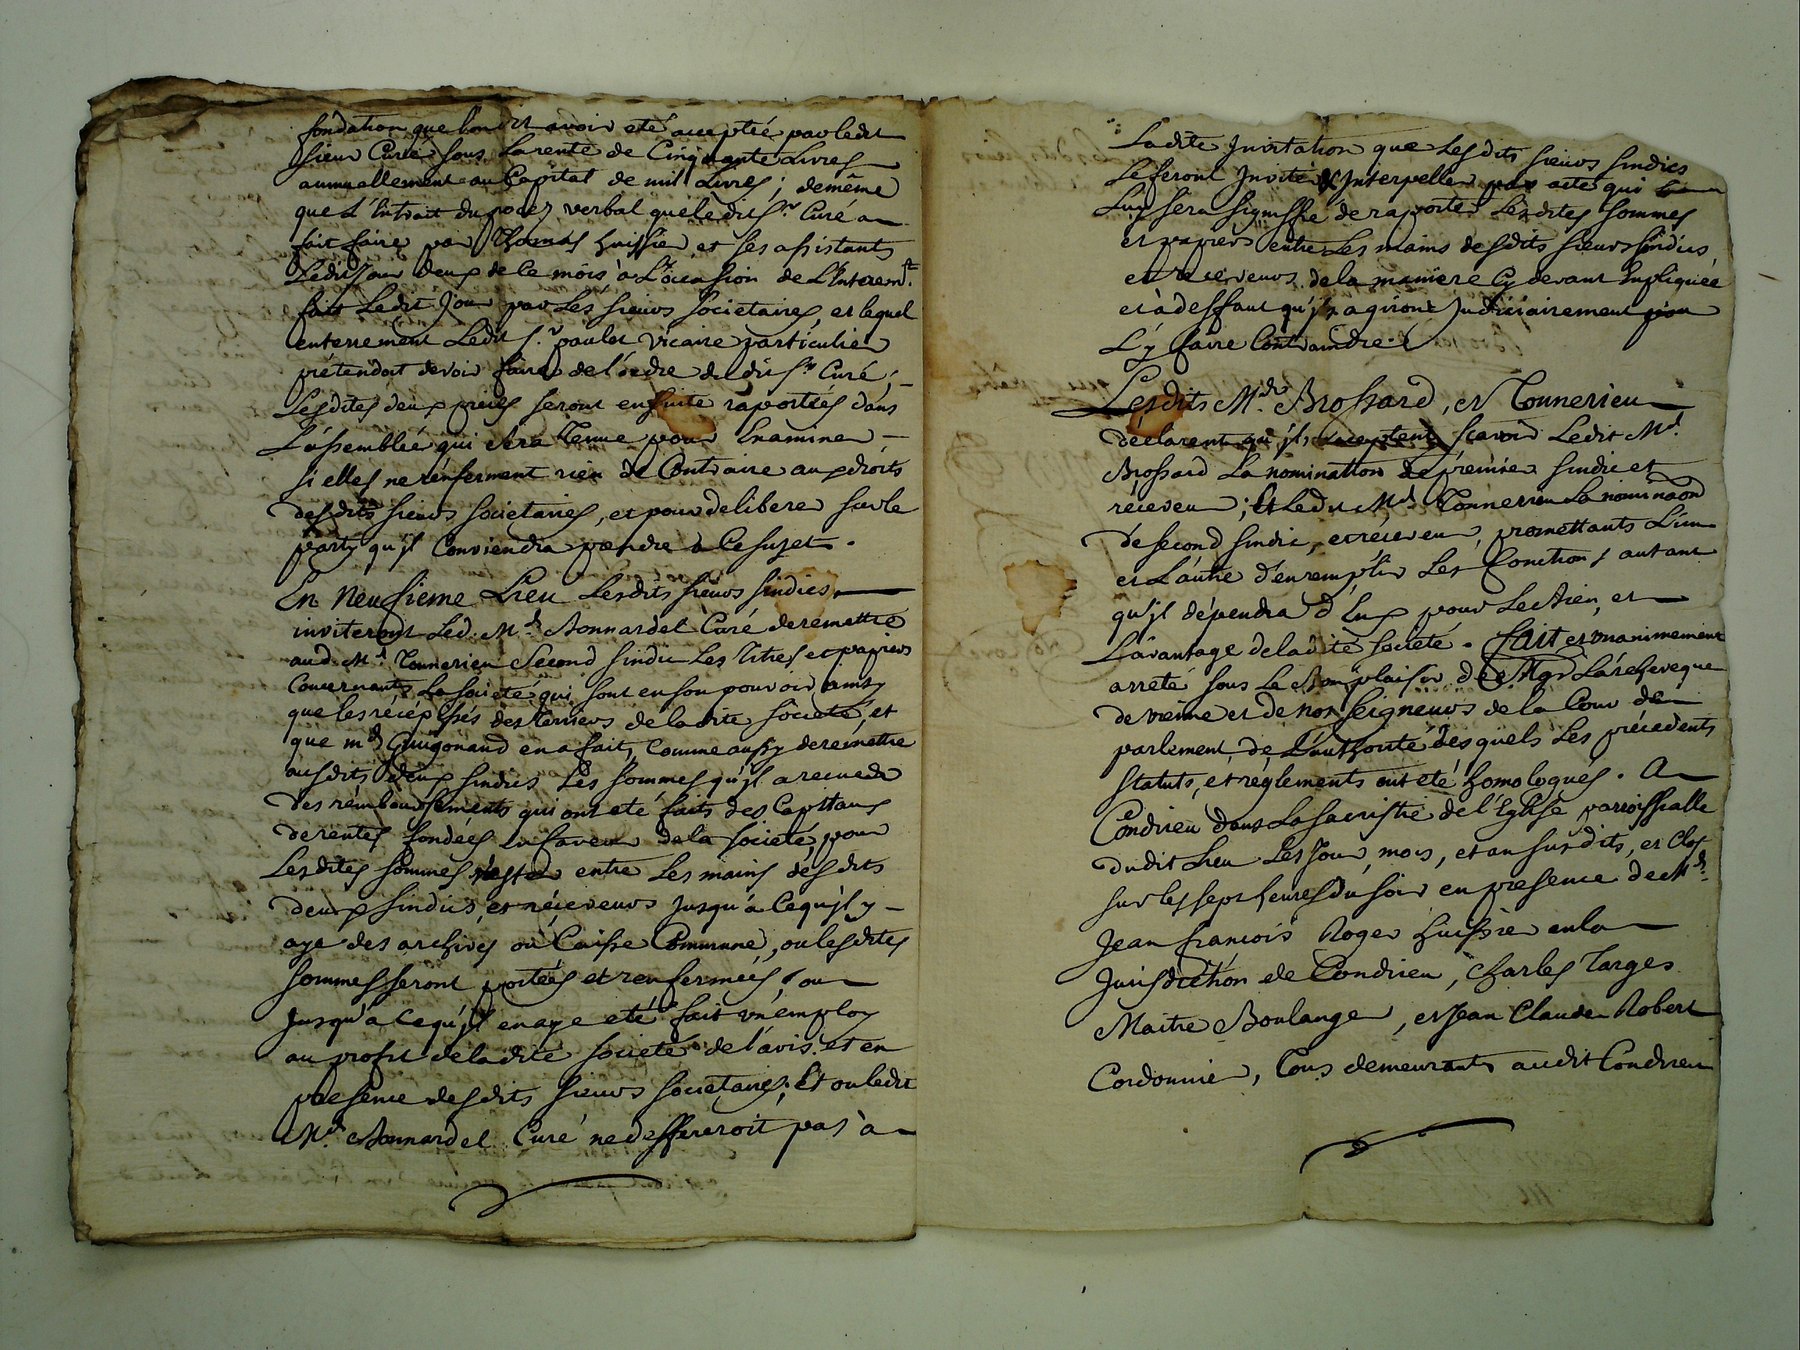 fondation que l'on dit avoir eté acceptée par ledit
sieur Curé sous la rente de Cinquante Livres
annuellement au Capital de mil Livres ; demême
que L'Extrait du procez verbal que le dit Sr. Curé a
fait faire par Thomas huissier et ses assistants
Ledit Jour deux de ce mois à L'ocasion de L'Enterremt.
fait Ledit Jour par Les sieurs societaires, et lequel
enterrement Ledit Sr. paulat vicaire particulier
prétendoit devoir faire de l'ordre du dit Sr. Curé ;
Lesdites deux pieces seront ensuite raportées dans
L'assemblée qui sera Tenue pour Examiner
si elles ne renferment rien de Contraire aux droits
desdits sieurs societaires, et pour deliberer sur le
party qu'jl Conviendra prendre à Ce sujet.
En Neufsieme Lieu Lesdits sieurs sindics
inviteront Led. Mr. Bonnardel Curé de remettre
aud. Mr. Tonnerieu second sindic Les Titres et papiers
Concernants La societé qui sont en son pouvoir ainsy
que les récépissés des Terriers de la dite societé, et
que mr. Guigonand en a fait, Comme aussy de remettre
ausdits deux sindics Les sommes qu'jl a receu de
Des remboursements qui ont eté faits des Capitaux
de rentes fondées en faveur de la societé, pour
Lesdites sommes rester entre Les mains desdits
deux sindics, et réceveurs Jusqu'à Cequ'jl y
aye des archives ou Caisse Commune, ou lesdites
sommes seront portées et renfermées, ou
Jusqu'à Cequ'jl en aye eté fait un employ
au profit de la dite societé de l'avis et en
presence desdits sieurs societaires ; Et ou ledit
Mr. Bonnardel Curé ne deffereroit pas à
La dite Invitation que Lesdits sieurs sindics
Le feront Inviter & Interpeller par acte qui
Luy sera signiffié de raporter Lesdites sommes
et papiers entre Les mains desdits sieurs sindics,
et receveurs de la maniere Cy devant Expliquée
et à deffaut qu'jls agiront Judiciairement pour
L'y faire Contraindre.
Lesdits Mrs. Brossard, et Tonnerieu
déclarent qu'jls acceptent sçavoir Ledit Mr.
Brossard La nomination de premier sindic et
réceveur ; Et Ledit Mr. Tonnerieu La nominaon
de second sindic, et réceveur, promettants L'un
et L'autre d'en remplir Les fonctions autant
qu'jl dépendra d'Eux pour Le bien, et
L'avantage de la dite societé. fait et unanimement
arreté sous Le Bon plaisir de Mgr L'archeveque
de vienne et de Nos seigneurs de la Cour de
parlement de L'authorité desquels Les précedents
statuts, et réglements ont eté homologués. A
Condrieu dans La sacristie de l'Eglise parroissialle
dudit Lieu Les Jour, mois, et an susdits, et Clos
sur les sept heures du soir en presence de Mr.
Jean françois Roger huissier en la
Jurisdiction de Condrieu, Charles Targes
Maitre Boulanger, et Jean Claude Robert
Cordonnier, Tous demeurants audit Condrieu